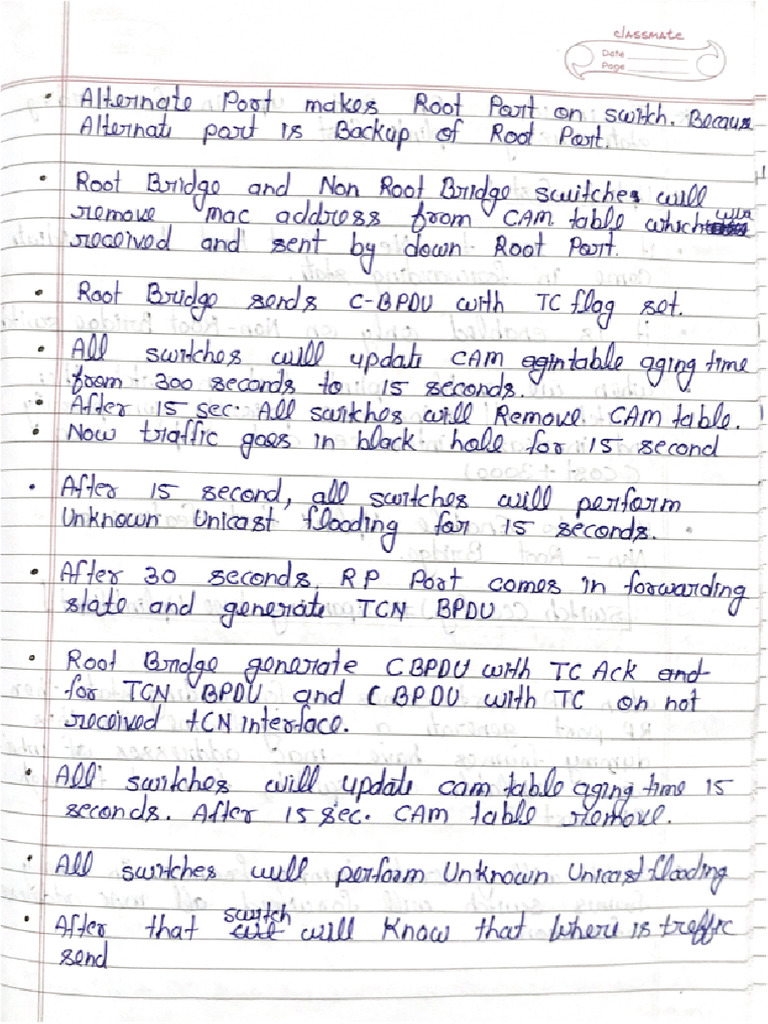 classmate
Date
Page
• Alternate Port makes Root Port on switch. Becaus
Alternati port is Backup of Root Port.
• Root Bridge and Non Root Bridge switches will
remove mac address from CAM table which
received and sent by down Root Port.
• Root Bridge sends C-BPDU with TC flag set.
• All switches will update CAM agintable aging time
from 300 seconds to 15 seconds.
• After 15 sec. All switches will Remove CAM table.
• Now traffic goes in black hole for 15 second
• After 15 second, all switches will perform
Unknown Unicast flooding for 15 seconds.
• After 30 seconds RP Port comes in forwarding
state and generate TCN BPDU
• Root Bridge generate CBPDU with TC Ack and
for TCN BPDU and CBPDU with TC on not
received tCN interface.
• All switches will update cam table aging time 15
seconds. After 15 sec. CAM table remove.
• All switches will perform Unknown Unicast flooding
• After that switch will Know that where is treffic
send